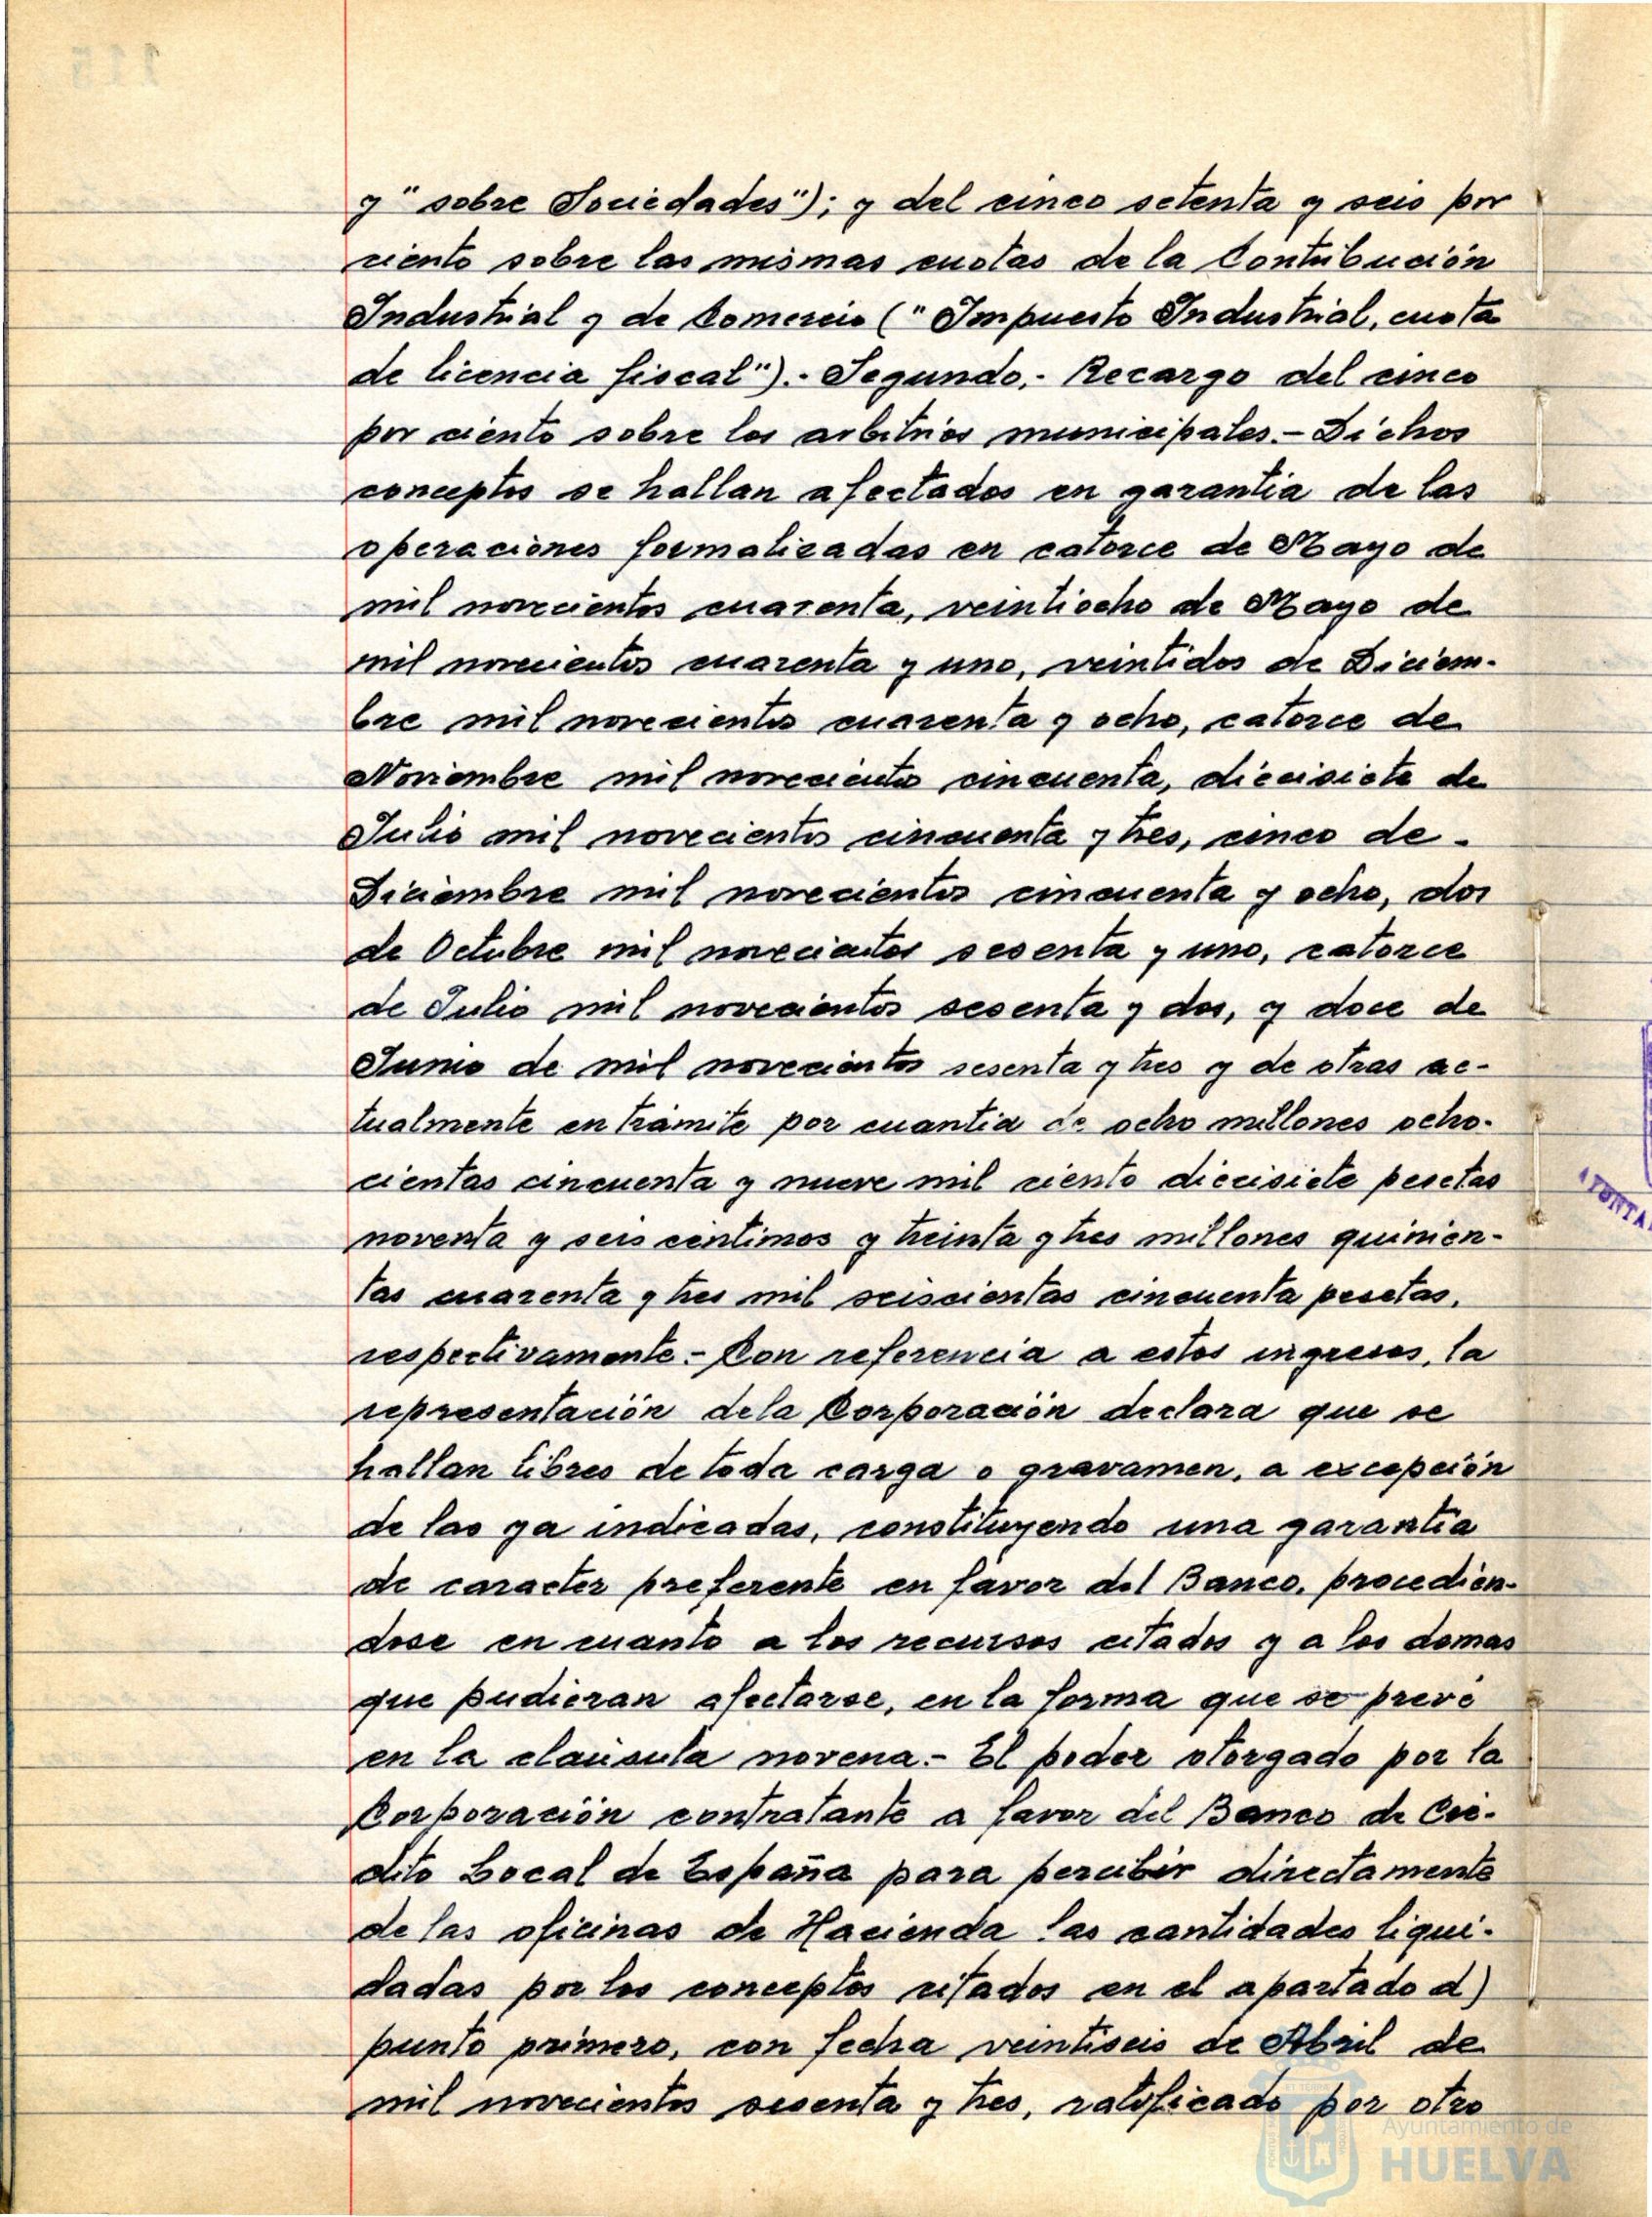 y "sobre Sociedades"); y del cinco setenta y seis por
ciento sobre las mismas cuotas de la Contribución
Industrial y de Comercio ("Impuesto Industrial, cuota
de licencia fiscal").- Segundo.- Recargo del cinco
por ciento sobre los arbitrios municipales.- Dichos
conceptos se hallan afectados en garantia de las
operaciones formalizadas en catorce de Mayo de
mil novecientos cuarenta, veintiocho de Mayo de
mil novecientos cuarenta y uno, veintidos de Diciem-
bre mil novecientos cuarenta y ocho, catorce de
Noviembre mil novecientos cincuenta, diecisiete de
Julio mil novecientos cincuenta y tres, cinco de -
Diciembre mil novecientos cincuenta y ocho, dos
de Octubre mil novecientos sesenta y uno, catorce
de Julio mil novecientos sesenta y dos, y doce de
Junio de mil novecientos sesenta y tres y de otras ac-
tualmente en trámite por cuantia de ocho millones ocho-
cientas cincuenta y nueve mil ciento diecisiete pesetas
noventa y seis centimos y treinta y tres millones quinien-
tas cuarenta y tres mil seiscientas cincuenta pesetas,
respectivamente.- Con referencia a estos ingresos, la
representación de la Corporación declara que se
hallan libres de toda carga o gravamen, a excepción
de las ya indicadas, constituyendo una garantía
de caracter preferente en favor del Banco, procedien-
dose en cuanto a los recursos citados y a los demas
que pudieran afectarse, en la forma que se prevé
en la clausula novena.- El poder otorgado por la
Corporación contratante a favor del Banco de Cré-
dito Local de España para percibir directamente
de las oficinas de Hacienda las cantidades liqui-
dadas por los conceptos citados en el apartado d)
punto primero, con fecha veintiseis de Abril de
mil novecientos sesenta y tres, ratificado por otro
Ayuntamiento de
HUELVA
115